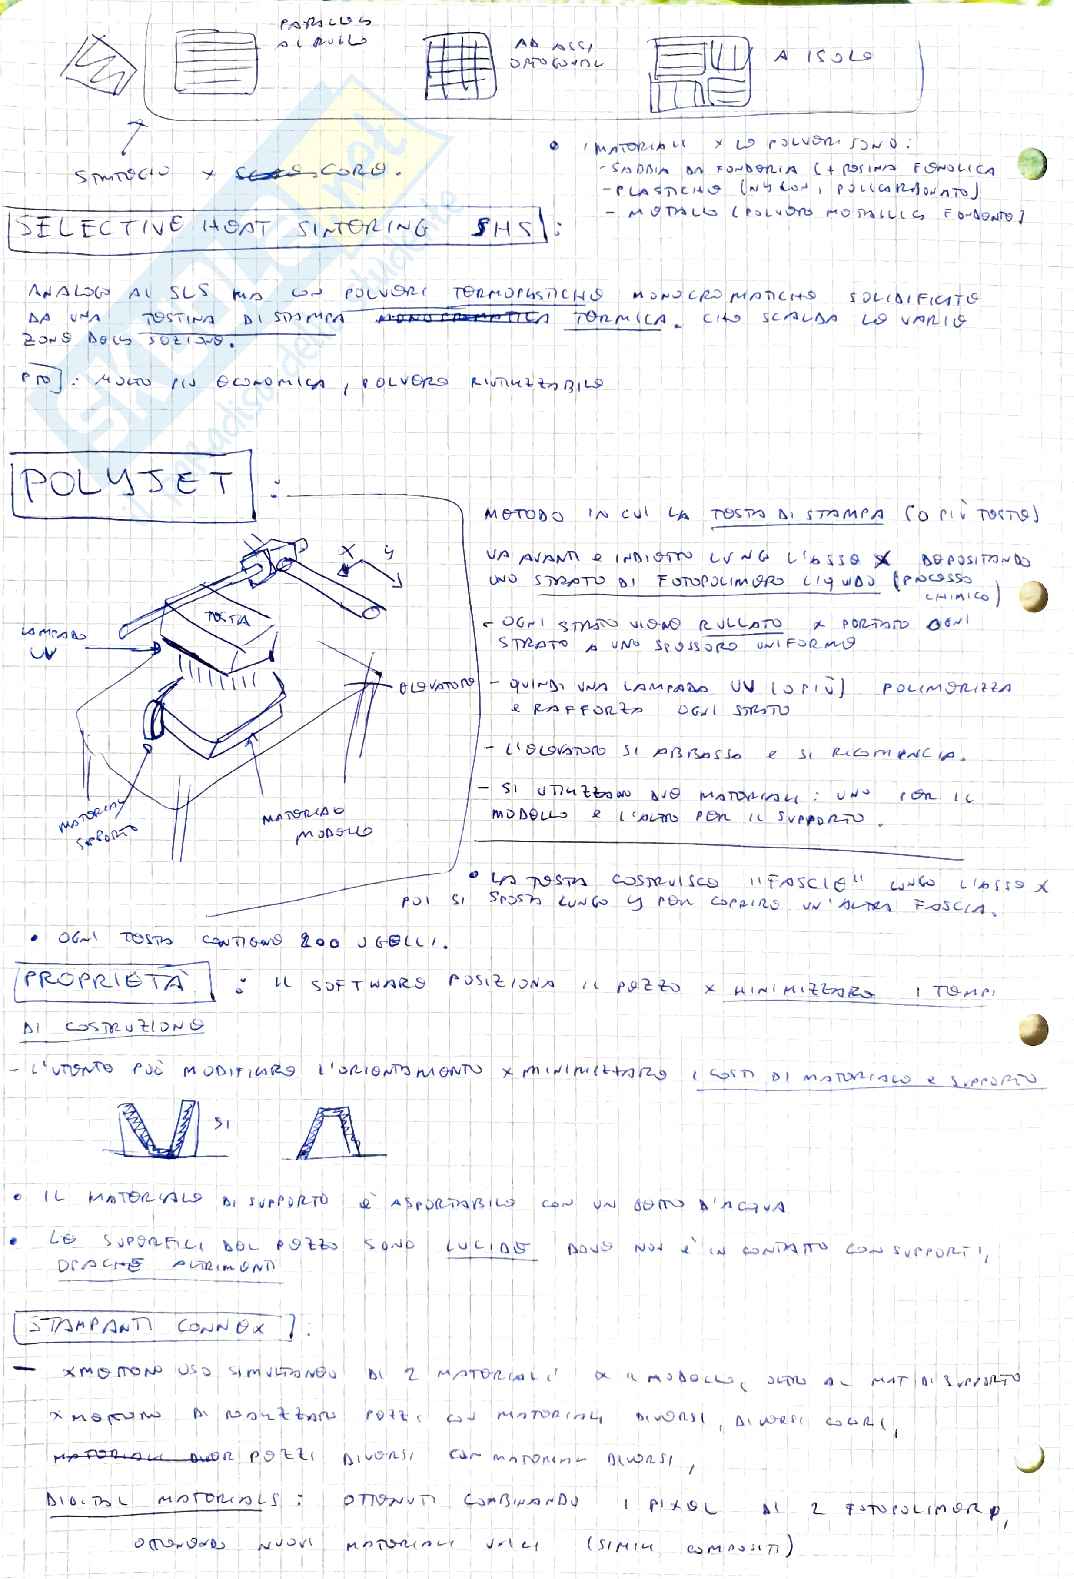 PARALLELO
AL RULLO
AD ASSI
ORTOGONAL
A ISOLE
STRATEGIE X CORE.
• I MATERIALI X LE POLVERI SONO:
- SABBIA DA FONDERIA (+ RESINA FENOLICA
- PLASTICHE (NYLON, POLICARBONATO)
- METALLO (POLVERE METALLICA FONDENTE)
SELECTIVE HEAT SINTERING SHS:
ANALOGO AL SLS MA CON POLVERI TERMOPLASTICHE MONOCROMATICHE SOLIDIFICATE
DA UNA TESTINA DI STAMPA MONOCROMATICA TERMICA. CHE SCALDA LE VARIE
ZONE DELLA SEZIONE.
PRO: MOLTO PIÙ ECONOMICA, POLVERE RIUTILIZZABILE
POLYJET:
METODO IN CUI LA TESTA DI STAMPA (O PIÙ TESTE)
VA AVANTI E INDIETRO LUNGO L'ASSE X DEPOSITANDO
UNO STRATO DI FOTOPOLIMERO LIQUIDO (PROCESSO
CHIMICO)
- OGNI STRATO VIENE RULLATO X PORTARE OGNI
STRATO A UNO SPESSORE UNIFORME
- QUINDI UNA LAMPADA UV (O PIÙ) POLIMERIZZA
E RAFFORZA OGNI STRATO
- L'ELEVATORE SI ABBASSA E SI RICOMINCIA.
- SI UTILIZZANO DUE MATERIALI: UNO PER IL
MODELLO E L'ALTRO PER IL SUPPORTO.
X Y
TESTA
LAMPADE
UV
ELEVATORE
MATERIALE
SUPPORTO
MATERIALE
MODELLO
• LA TESTA COSTRUISCE "FASCIE" LUNGO L'ASSE X
POI SI SPOSTA LUNGO Y PER COPRIRE UN'ALTRA FASCIA.
• OGNI TESTA CONTIENE 200 UGELLI.
PROPRIETÀ: IL SOFTWARE POSIZIONA IL PEZZO X MINIMIZZARE I TEMPI
DI COSTRUZIONE
- L'UTENTE PUÒ MODIFICARE L'ORIENTAMENTO X MINIMIZZARE I COSTI DI MATERIALE E SUPPORTO
SI
• IL MATERIALE DI SUPPORTO È ASPORTABILE CON UN GETTO D'ACQUA
• LE SUPERFICI DEL PEZZO SONO LUCIDE DOVE NON È IN CONTATTO CON SUPPORTI,
OPACHE ALTRIMENTI
STAMPANTI CONNEX:
- XMETTONO USO SIMULTANEO DI 2 MATERIALI X IL MODELLO, OLTRE AL MAT DI SUPPORTO
XMETTONO DI REALIZZARE PEZZI CON MATERIALI DIVERSI, DIVERSI COLORI,
PEZZI DIVERSI CON MATERIALI DIVERSI,
DIGITAL MATERIALS: OTTENUTI COMBINANDO I PIXEL DI 2 FOTOPOLIMERI,
OTTENENDO NUOVI MATERIALI UNICI (SIMILI COMPOSITI)